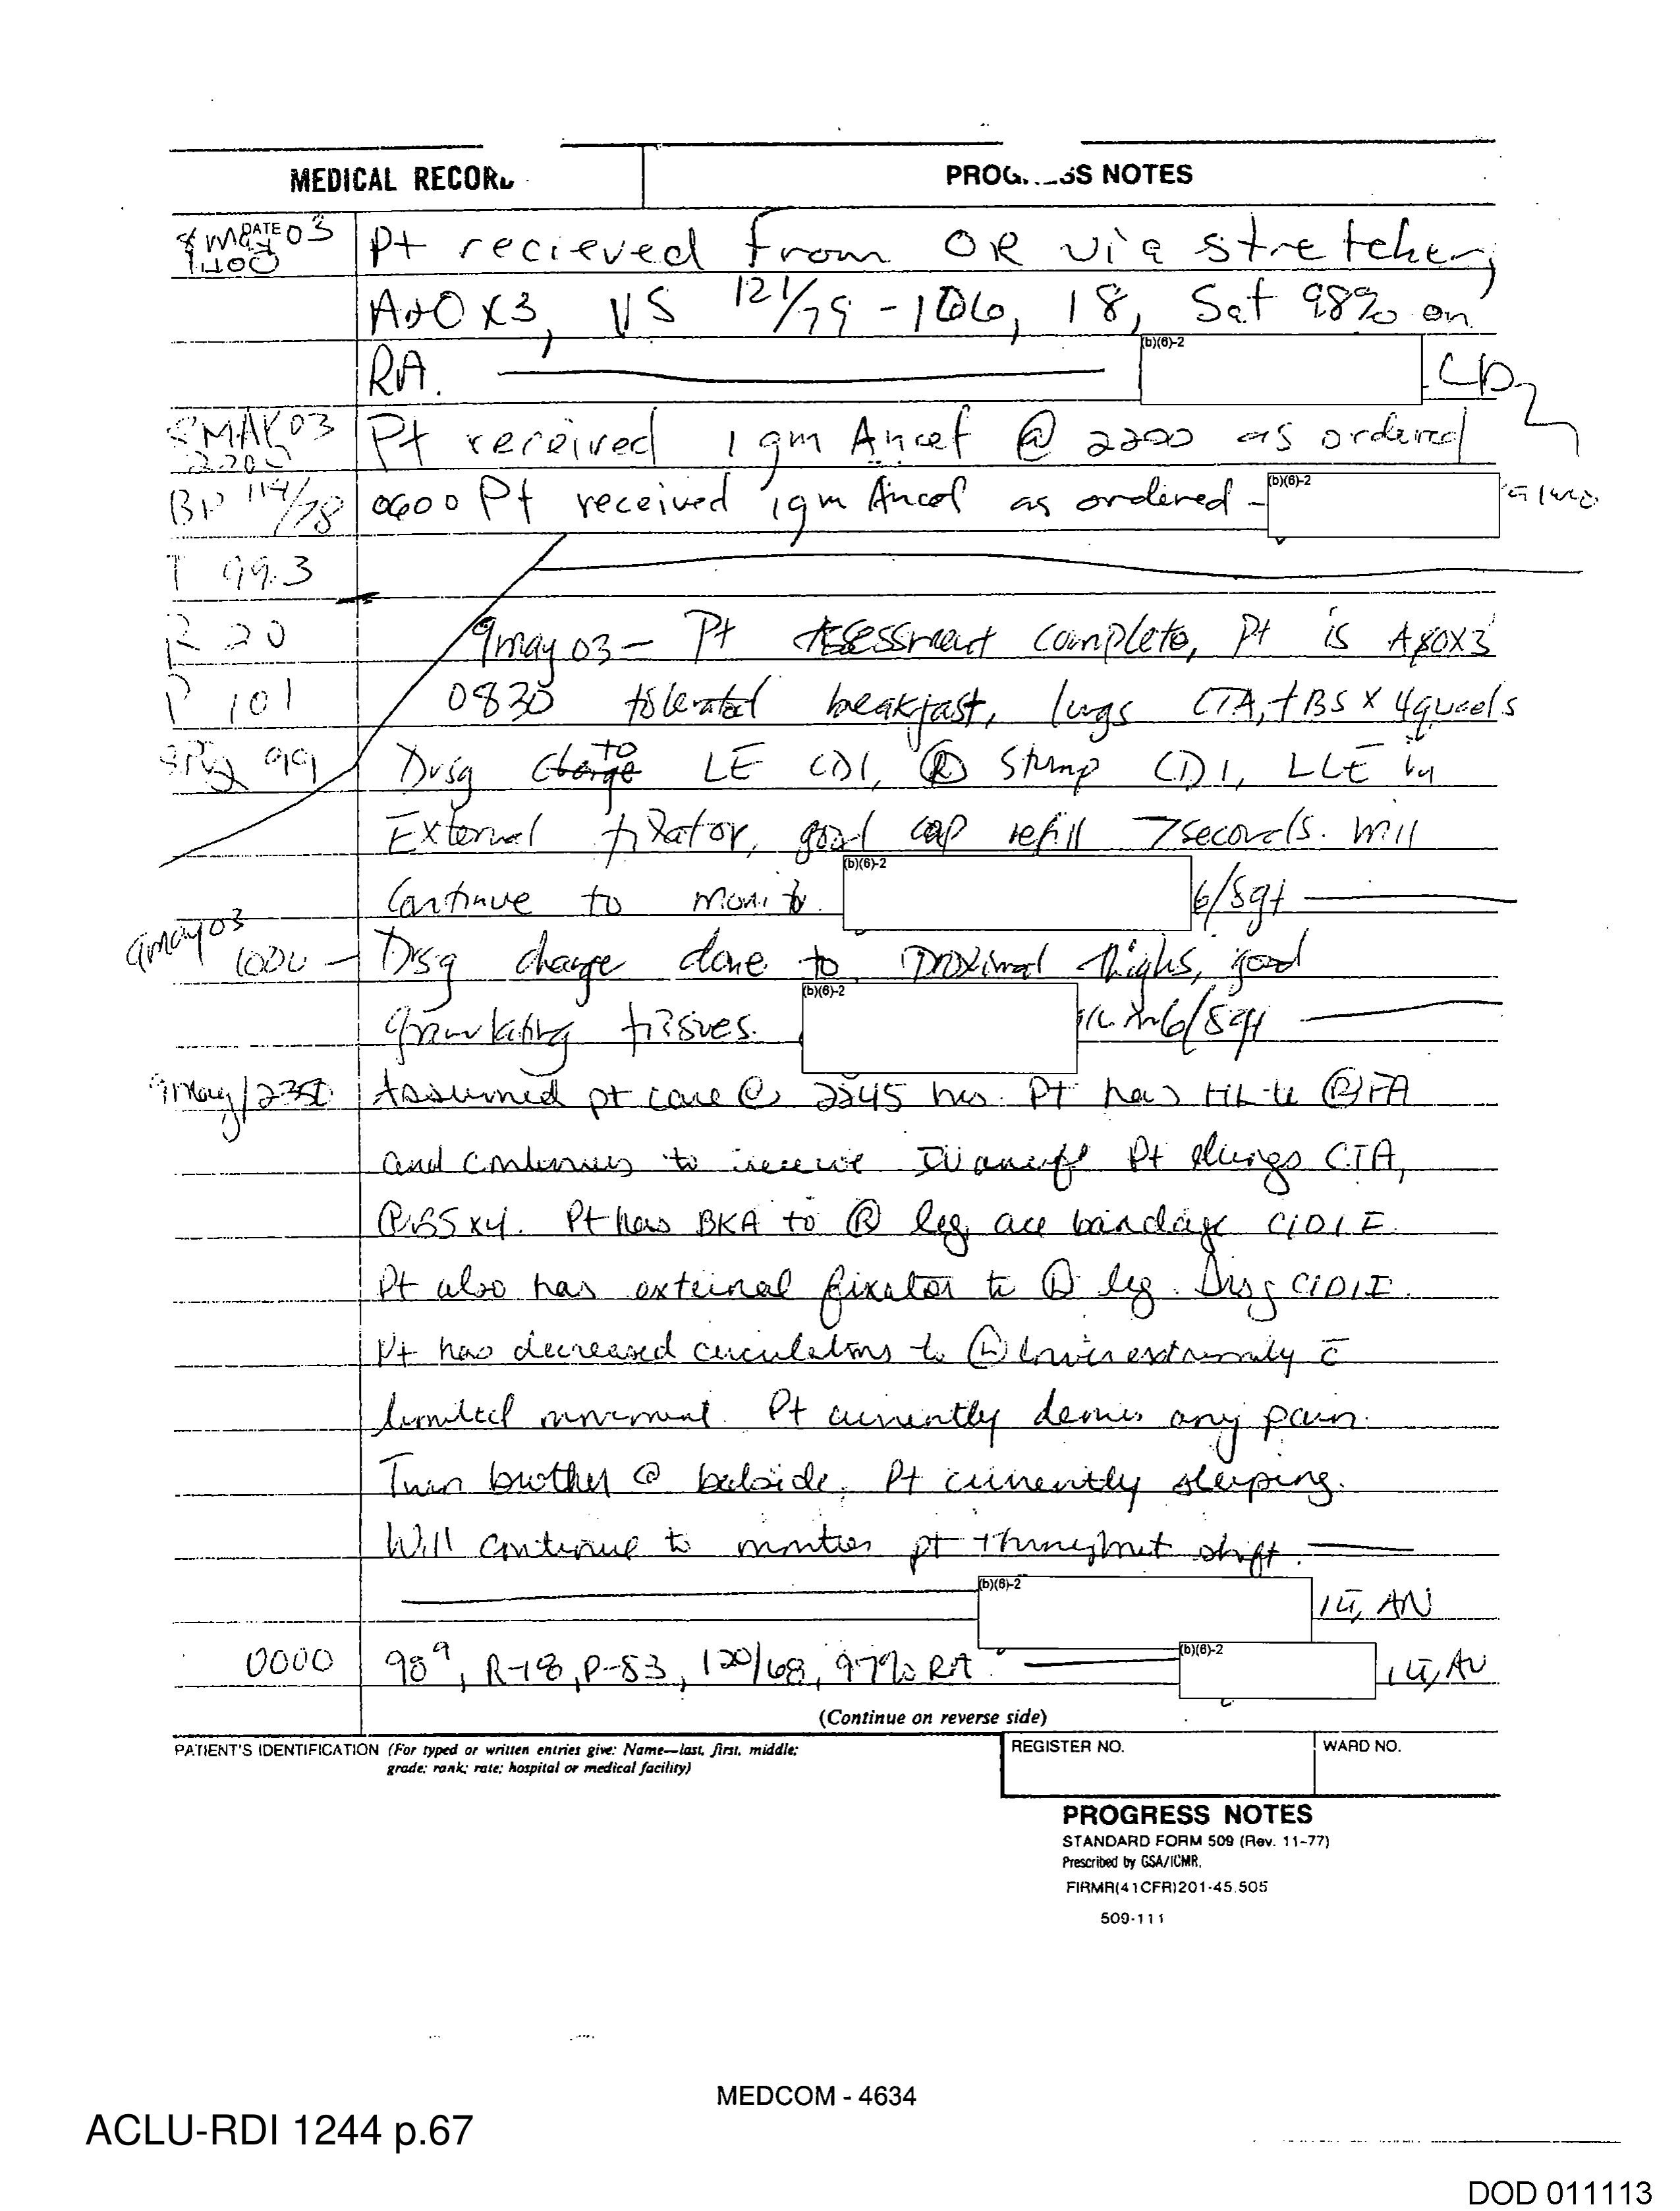 MEDICAL RECORD
PROGRESS NOTES
DATE
8 MAY 03
Pt recieved from OR via stretcher,
A+O x3, VS 121/79 - 106, 18, Sat 98% on
RA.
(b)(6)-2
8MAY03
2200
Pt received 1 gm Ancef @ 2200 as ordered
BP 114/78
0600 Pt received 1gm Ancef as ordered -
(b)(6)-2
T 99.3
R 20
9may03 - Pt Assessment complete, Pt is A&OX3
P 101
0830 tolerated breakfast, lungs CTA, +BS x 4quads
99
Drsg change to LE CDI, (R) Stump CDI, LLE in
External fixator, good cap refill 7seconds. Will
Continue to monitor.
(b)(6)-2
6/Sgt
9may03
1000 - Drsg change done to Proximal thighs, good
granulating tissues.
(b)(6)-2
6/Sgt
9May/2350
Assumed pt care @ 2245 hrs. Pt has HL to (R) FA
and continues to receive IV ancef. Pt lungs CTA,
(+)BS x4. Pt has BKA to (R) leg, ace bandage C/D/I.
Pt also has external fixator to (L) leg. Drsg C/D/I.
Pt has decreased circulations to (L) lower extremity c̄
limited movement. Pt currently denies any pain.
Twin brother @ bedside. Pt currently sleeping.
Will continue to monitor pt throughout shift.
(b)(6)-2
1LT, AN
0000
98⁹, R-18, P-83, 120/68, 97% RA.
(b)(6)-2
1LT, AN
(Continue on reverse side)
PATIENT'S IDENTIFICATION (For typed or written entries give: Name—last, first, middle;
grade; rank; rate; hospital or medical facility)
REGISTER NO.
WARD NO.
PROGRESS NOTES
STANDARD FORM 509 (Rev. 11-77)
Prescribed by GSA/ICMR,
FIRMR(41CFR)201-45.505
509-111
MEDCOM - 4634
ACLU-RDI 1244 p.67
DOD 011113